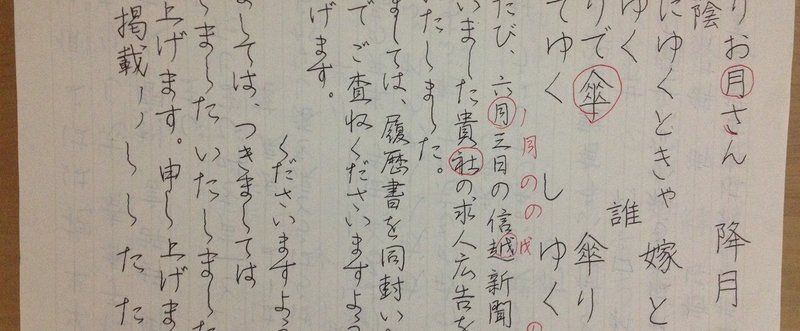 降月
りお月さん
嫁と
陰
にゆくときゃ
誰
ゆく
傘り
りで傘
しゆく
てゆく
ノ月のの戌
たび、六月三日の信越新聞
いました貴社の求人広告を
たしました。
ましては、履歴書を同封い
でご査収くださいますよう
げます。
くださいますよう
ましては、つきましては
しましたいたしました
上げます。申し上げま
掲載ノノししたた